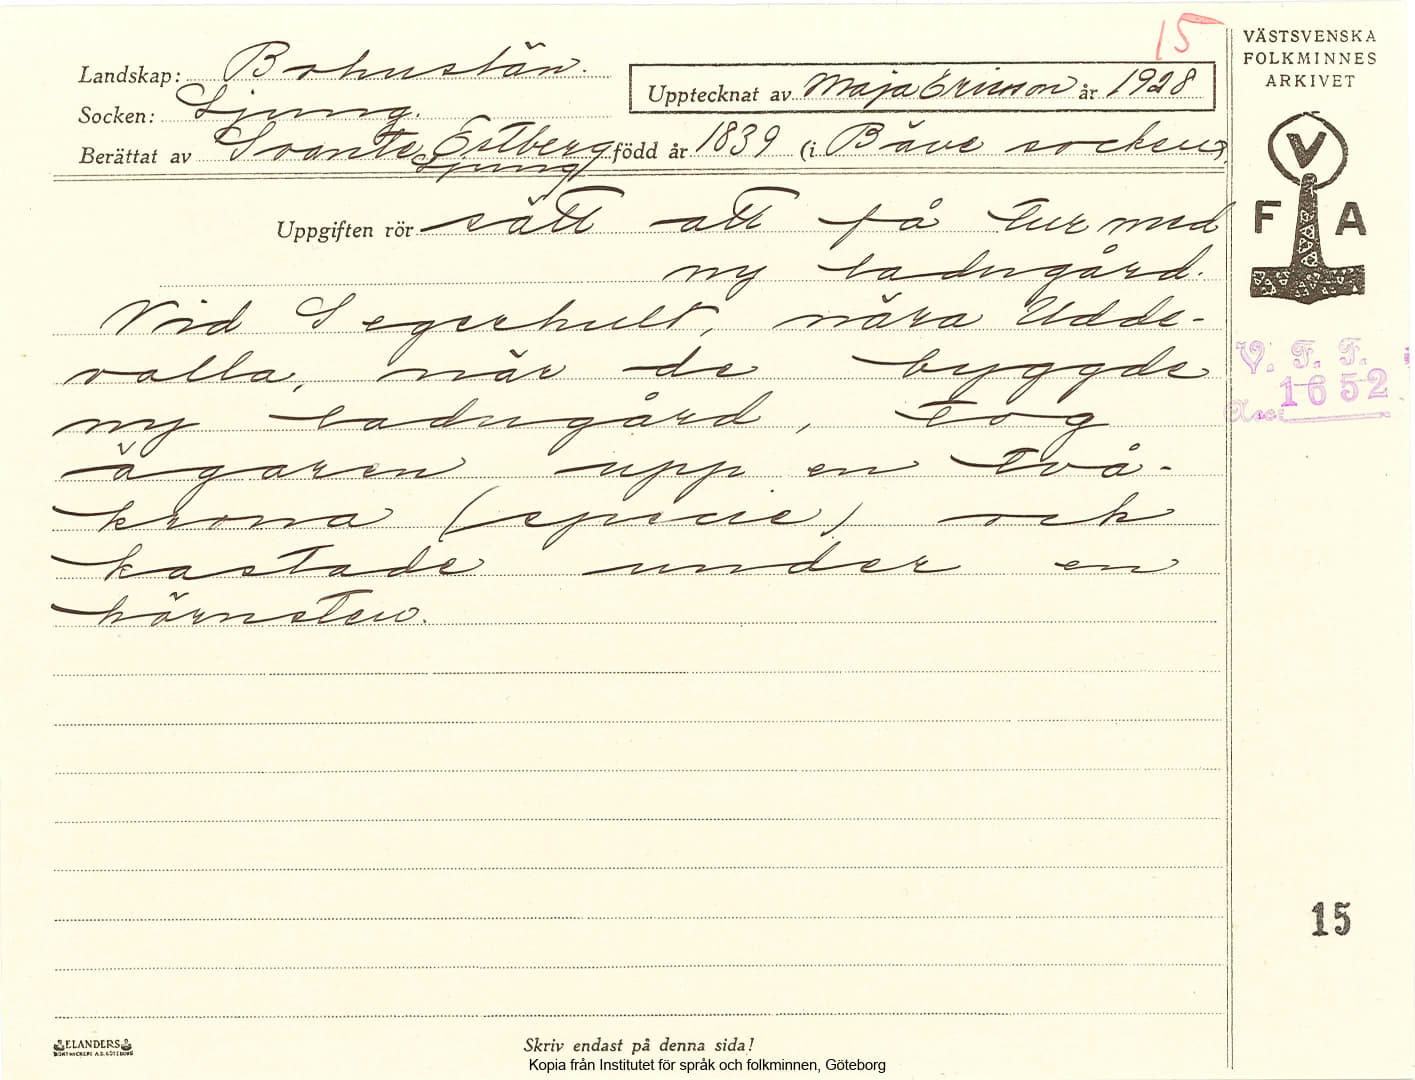 15
VÄSTSVENSKA
FOLKMINNES
ARKIVET
Landskap: Bohuslän.
Upptecknat av Maja Ericson år 1928
Socken: Ljung.
Berättat av Svante Estberg född år 1839 (i Bäve socken)
Ljung
V
F A
Uppgiften rör sätt att få tur med
ny ladugård.
Vid Segerhult, nära Udde-
valla, när de byggde
ny ladugård, tog
ägaren upp en två-
krona (specie) och
kastade under en
hörnsten.
V. F. F.
1652
Acc:
15
ELANDERS
BOKTRYCKERI A.B. GÖTEBORG
Skriv endast på denna sida!
Kopia från Institutet för språk och folkminnen, Göteborg